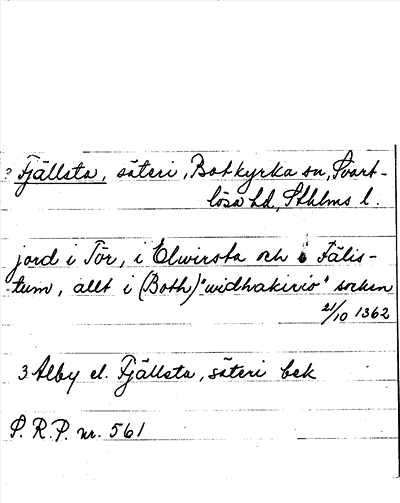 ? Fjällsta, säteri, Botkyrka sn, Svart-
lösa hd, Sthlms l.
jord i Tör, i Elwirsta och i Fälis-
tum, allt i (Both)"widhakirio" socken
21/10 1362
3 Alby el. Fjällsta, säteri bek
S. R. P. nr. 561